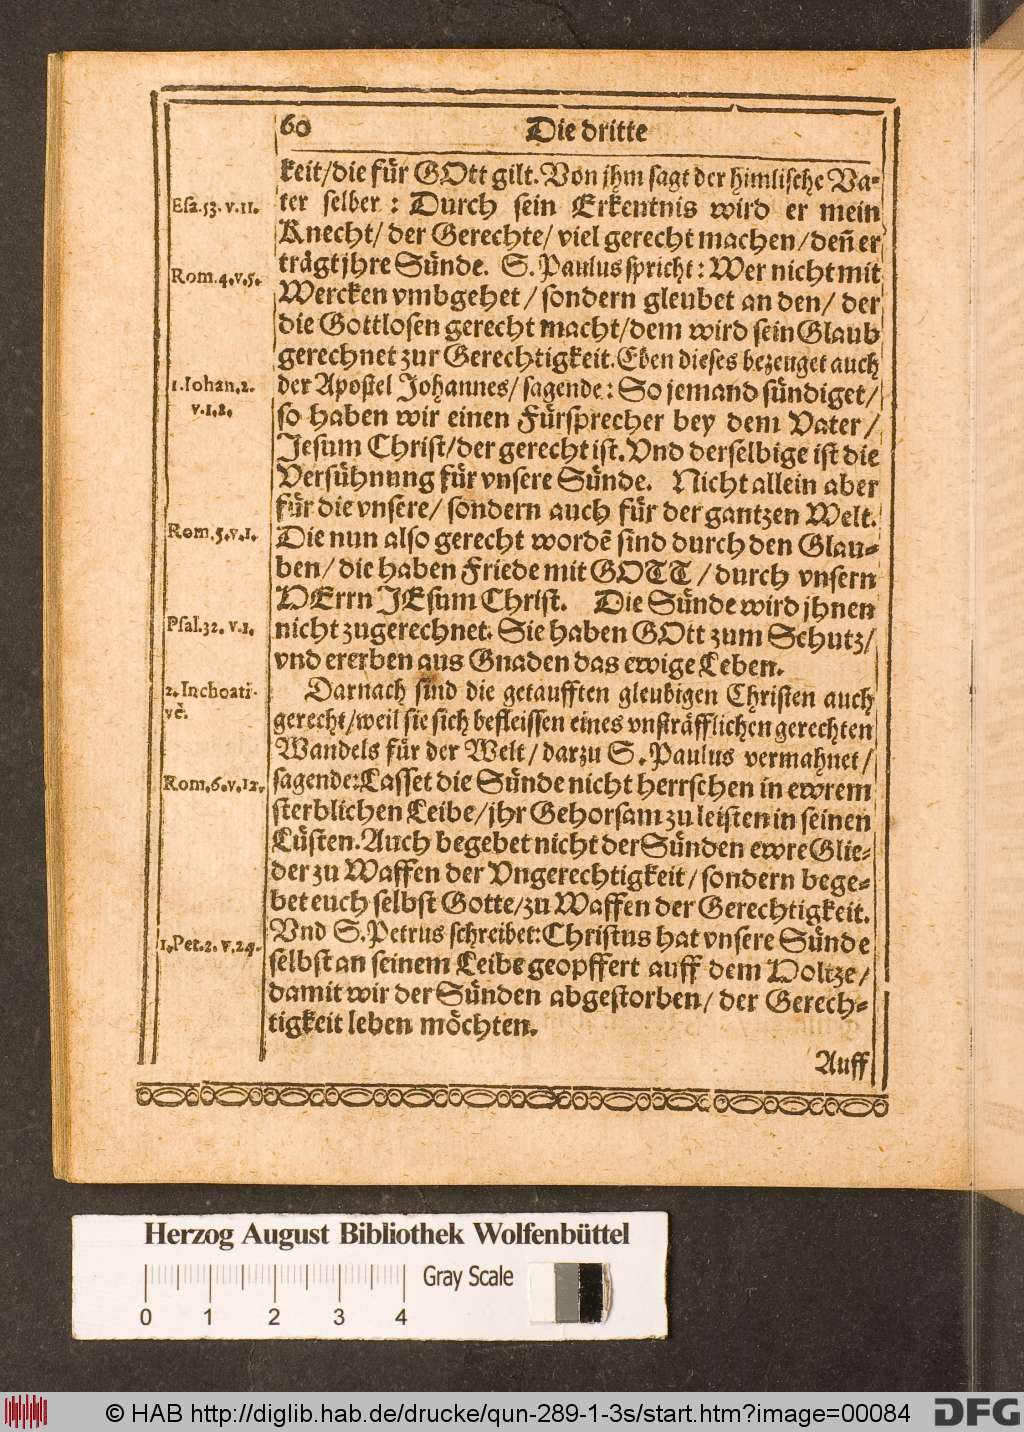 60 Die dritte
keit/die für GOtt gilt. Von jhm sagt der himlische Va-
Esa. 53. v. 11.
ter selber: Durch sein Erkentnis wird er mein
Knecht/ der Gerechte/ viel gerecht machen/ deñ er
Rom. 4. v. 5.
trägt jhre Sünde. S. Paulus spricht: Wer nicht mit
Wercken vmbgehet/ sondern gleubet an den/ der
die Gottlosen gerecht macht/dem wird sein Glaub
gerechnet zur Gerechtigkeit. Eben dieses bezeuget auch
1. Iohan. 2.
v. 1. 2.
der Apostel Johannes/ sagende: So jemand sündiget/
so haben wir einen Fürsprecher bey dem Vater/
Jesum Christ/der gerecht ist. Vnd derselbige ist die
Versühnung für vnsere Sünde. Nicht allein aber
für die vnsere/ sondern auch für der gantzen Welt.
Rom. 5. v. 1.
Die nun also gerecht wordẽ sind durch den Glau-
ben/ die haben Friede mit GOTT/ durch vnsern
HErrn JEsum Christ. Die Sünde wird jhnen
Psal. 32. v. 1.
nicht zugerechnet. Sie haben GOtt zum Schutz/
vnd ererben aus Gnaden das ewige Leben.
2. Inchoati-
vè.
Darnach sind die getaufften gleubigen Christen auch
gerecht/weil sie sich befleissen eines vnsträfflichen gerechten
Wandels für der Welt/ darzu S. Paulus vermahnet/
Rom. 6. v. 12.
sagende: Lasset die Sünde nicht herrschen in ewrem
sterblichen Leibe/jhr Gehorsam zu leisten in seinen
Lüsten. Auch begebet nicht der Sünden ewre Glie-
der zu Waffen der Vngerechtigkeit/ sondern bege-
bet euch selbst Gotte/zu Waffen der Gerechtigkeit.
1. Pet. 2. v. 24.
Vnd S. Petrus schreibet: Christus hat vnsere Sünde
selbst an seinem Leibe geopffert auff dem Holtze/
damit wir der Sünden abgestorben/ der Gerech-
tigkeit leben möchten.
Auff
Herzog August Bibliothek Wolfenbüttel
Gray Scale
0 1 2 3 4
© HAB http://diglib.hab.de/drucke/qun-289-1-3s/start.htm?image=00084
DFG